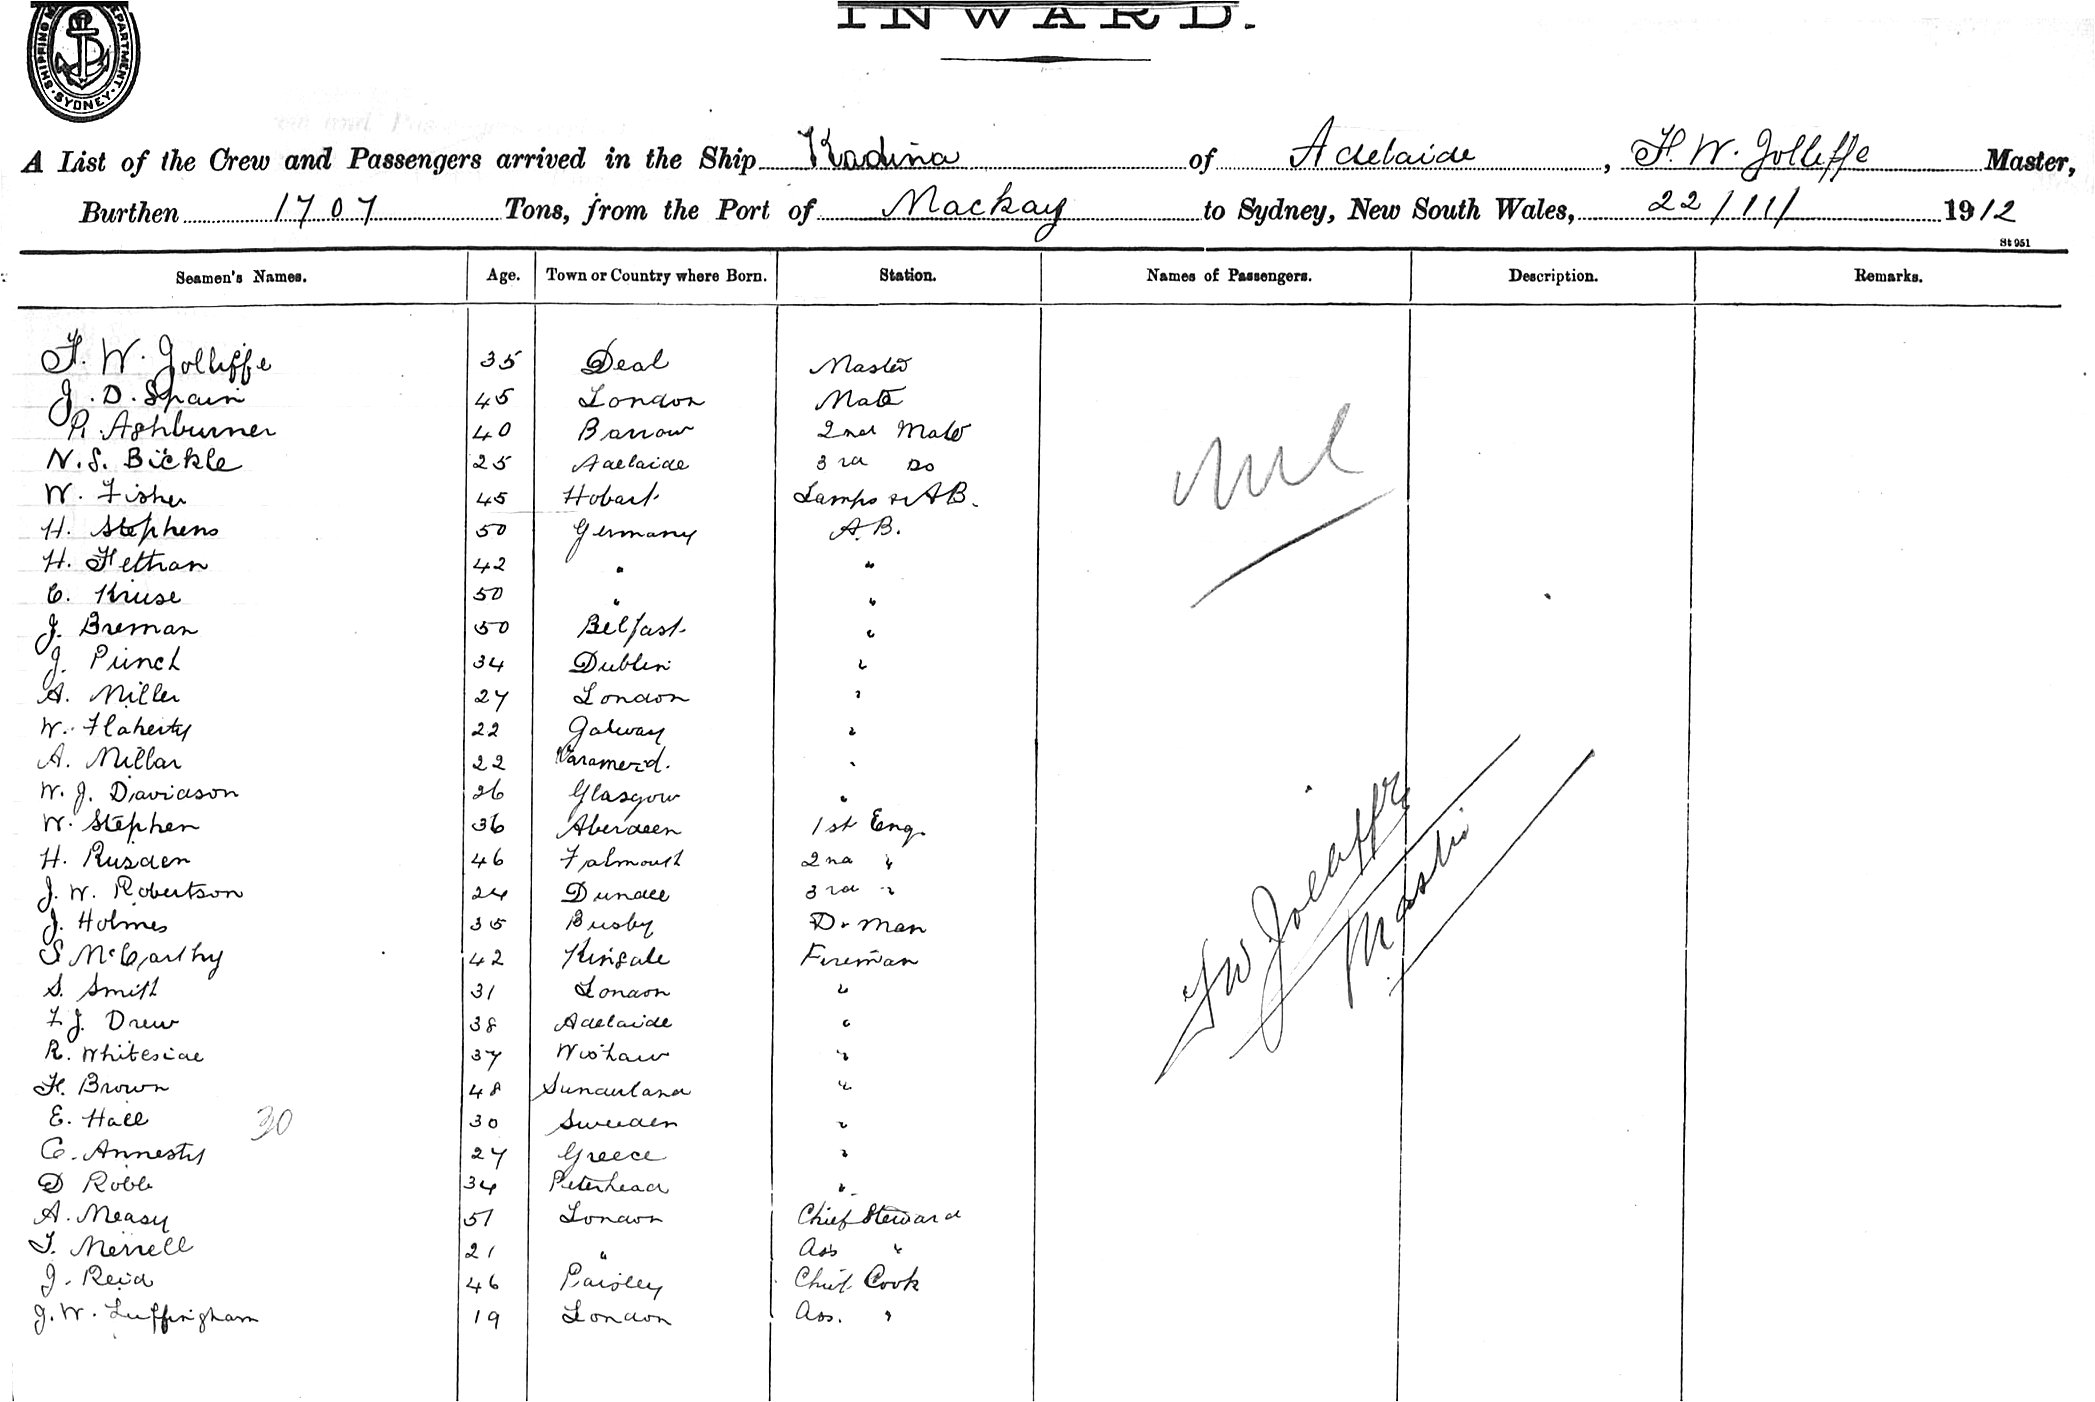 SHIPPING DEPARTMENT SYDNEY
INWARD.
A List of the Crew and Passengers arrived in the Ship Kadina of Adelaide, F. W. Jolliffe Master,
Burthen 1707 Tons, from the Port of Mackay to Sydney, New South Wales, 22/11/ 1912
St 951
Seamen's Names. Age. Town or Country where Born. Station. Names of Passengers. Description. Remarks.
F. W. Jolliffe 35 Deal Master
J. D. Spain 45 London Mate
R. Ashburner 40 Barrow 2nd Mate
N. S. Bickle 25 Adelaide 3rd Do
W. Fisher 45 Hobart Lamps & AB.
H. Stephens 50 Germany A.B.
H. 42 " "
C. Kruse 50 " "
J. Breman 50 Belfast "
J. Punch 34 Dublin "
A. Miller 27 London "
W. Flaherty 22 Galway "
A. Millar 22 "
W. J. Davidson 26 Glasgow "
W. Stephen 36 Aberdeen 1st Eng.
H. Rusden 46 Falmouth 2nd "
J. W. Robertson 24 Dundee 3rd "
J. Holmes 35 Busby D. Man
S McCarthy 42 Kinsale Fireman
S. Smith 31 London "
F. J. Drew 38 Adelaide "
R. Whiteside 37 Wishaw "
H. Brown 48 Sunderland "
E. Hall 30 30 Sweden "
C. Annesty 27 Greece "
D Robb 34 Peterhead "
A. Measy 51 London Chief Steward
T. Merrell 21 " Ass "
J. Reid 46 Paisley Chief Cook
J. W. Luffingham 19 London Ass. "
nil
F W Jolliffe
Master